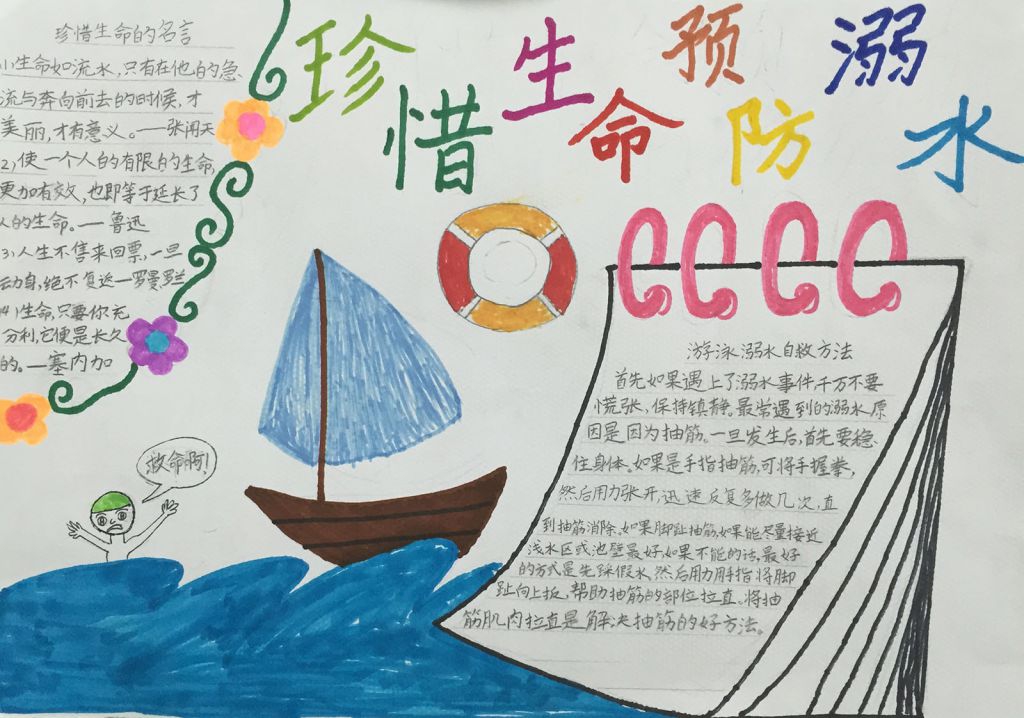 珍惜生命 预防溺水
珍惜生命的名言
1)生命如流水,只有在他的急
流与奔向前去的时候,才
美丽,才有意义。——张闻天
2)使一个人的有限的生命,
更加有效,也即等于延长了
人的生命。——鲁迅
3)人生不售来回票,一旦
动身,绝不复返—罗曼罗兰
4)生命,只要你充
分利,它便是长久
的。—塞内加
救命啊!
游泳溺水自救方法
首先如果遇上了溺水事件千万不要
慌张,保持镇静。最常遇到的溺水原
因是因为抽筋。一旦发生后,首先要稳
住身体。如果是手指抽筋,可将手握拳,
然后用力张开,迅速反复多做几次,直
到抽筋消除。如果脚趾抽筋,如果能尽量接近
浅水区或池壁最好,如果不能的话,最好
的方式是先踩假水,然后用力用手指将脚
趾向上扳,帮助抽筋的部位拉直。将抽
筋肌肉拉直是解决抽筋的好方法。